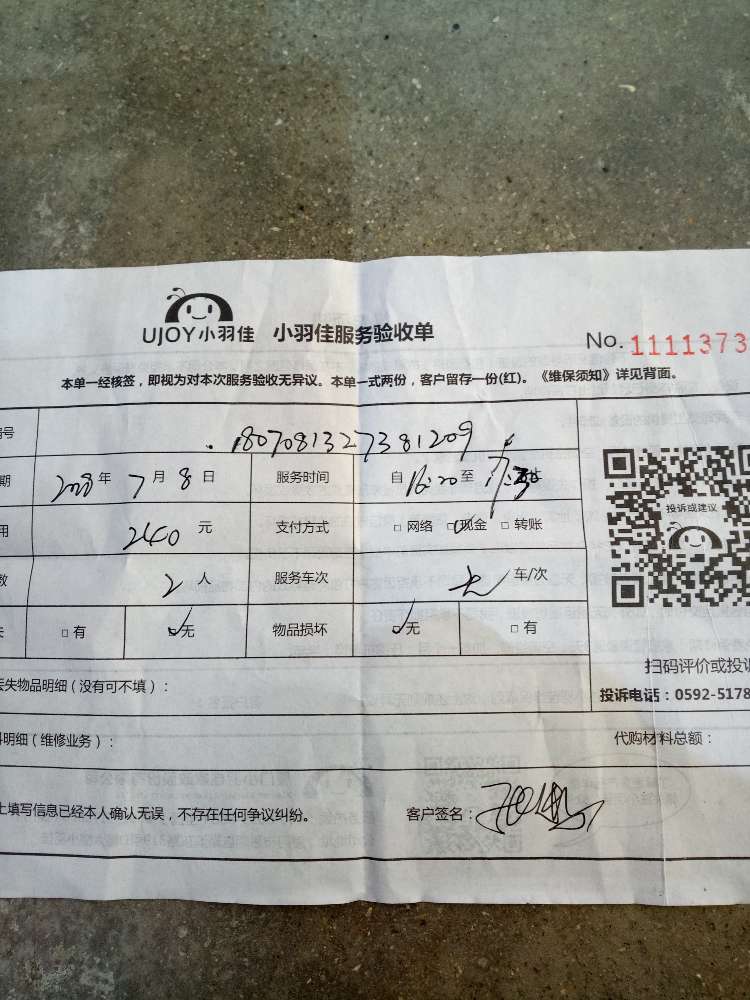 UJOY小羽佳 小羽佳服务验收单 No. 1111373
本单一经核签，即视为对本次服务验收无异议。本单一式两份，客户留存一份(红)。《维保须知》详见背面。
号 180708132738 1209
期 2018年 7月 8日 服务时间 自 16:20 至
用 240 元 支付方式 □ 网络 □ 现金 □ 转账
数 2 人 服务车次 无 车/次
失 □ 有 □ 无 物品损坏 □ 无 □ 有
投诉或建议
扫码评价或投诉
投诉电话：0592-5178
丢失物品明细（没有可不填）：
料明细（维修业务）： 代购材料总额：
上填写信息已经本人确认无误，不存在任何争议纠纷。 客户签名：